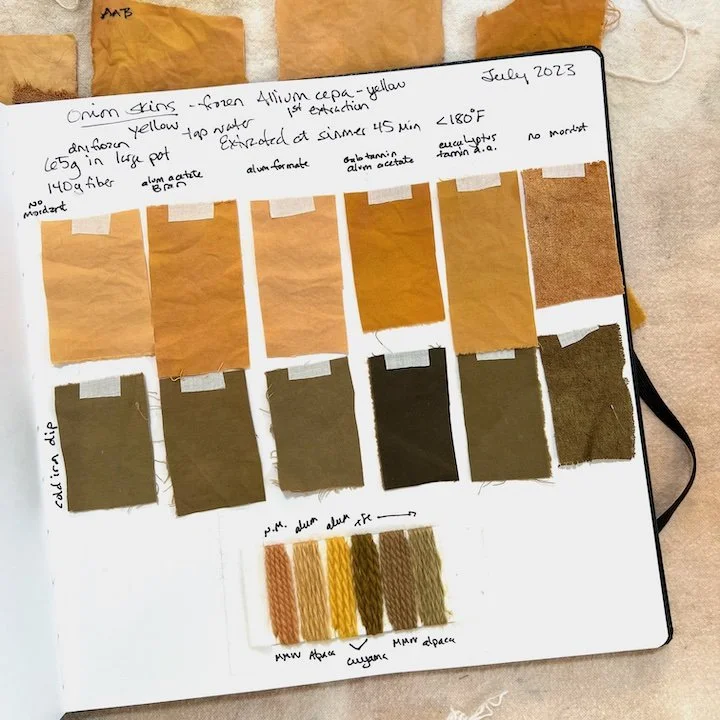 AAB
July 2023
Onion Skins - frozen Allium cepa - yellow
yellow tap water 1st extraction
dry frozen Extracted at simmer 45 min <180°F
65g in large pot
140g fiber
no mordant
alum acetate Bran
alum formate
alum acetate
eucalyptus tannin a.a.
no mordant
cold iron dip
N.M. alum alum +Fe →
MMW Alpaca cuyama MMW alpaca